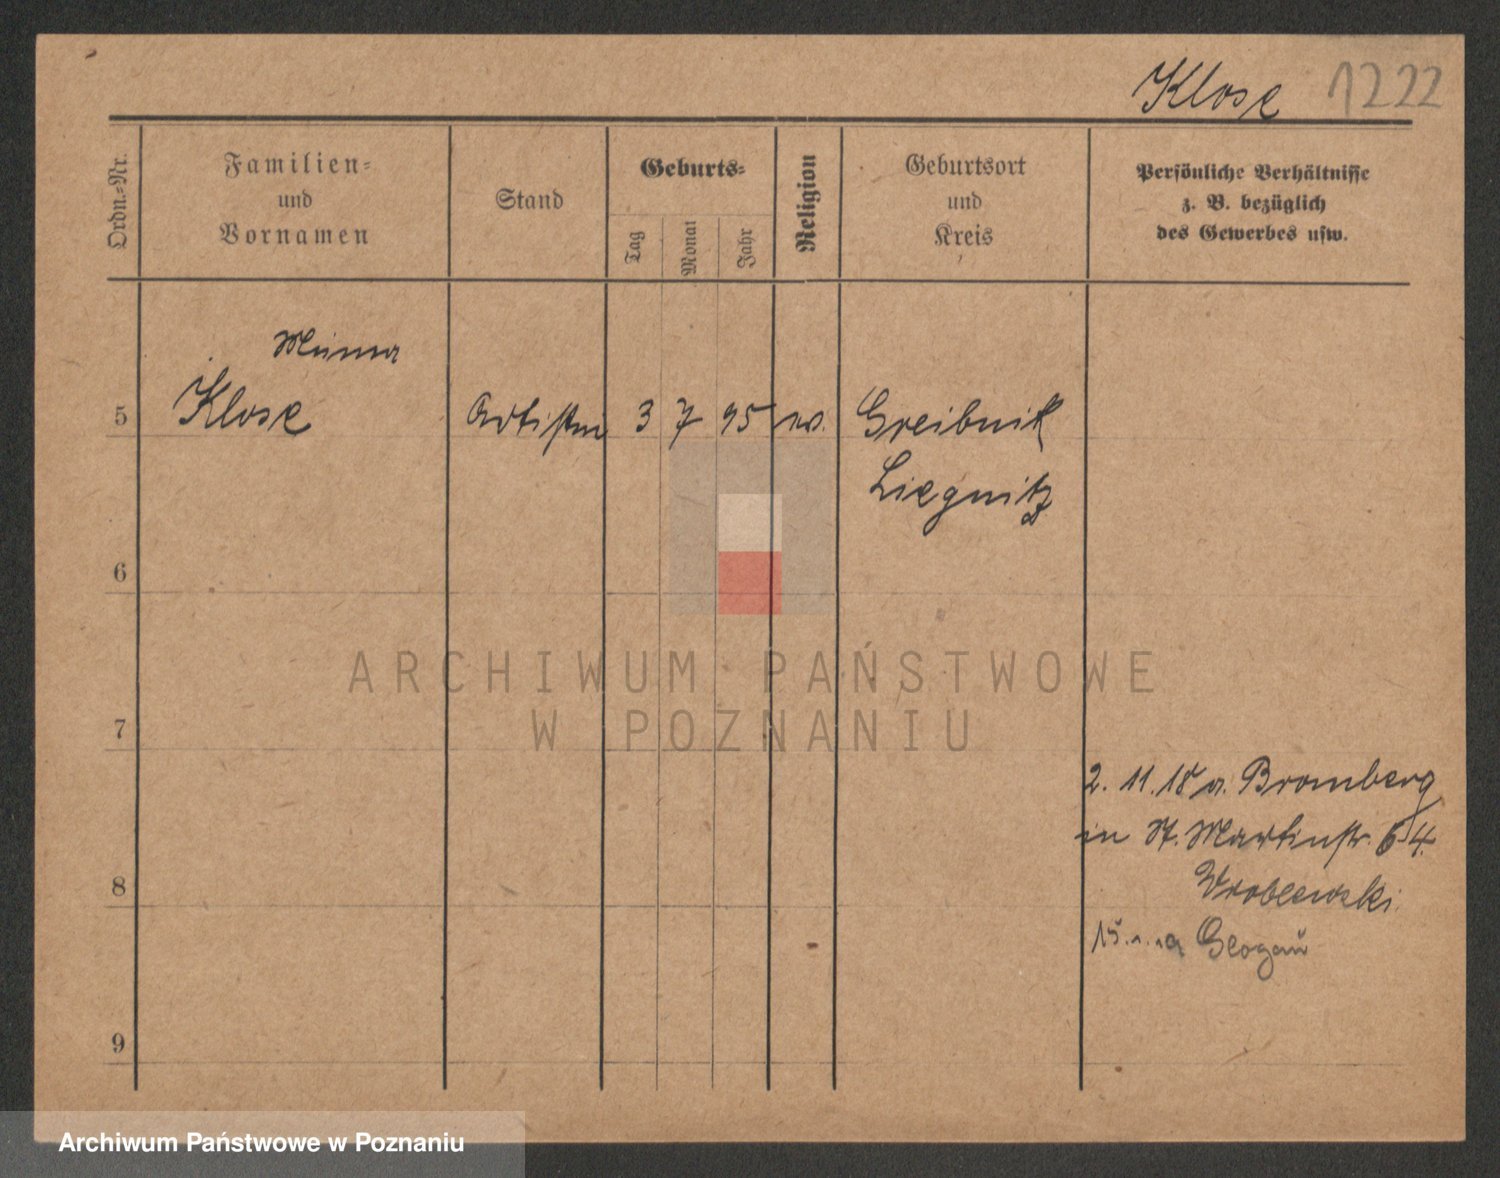 Klose 1222
Ordn.=Nr.
Familien=
und
Vornamen
Stand
Geburts=
Tag
Monat
Jahr
Religion
Geburtsort
und
Kreis
Persönliche Verhältnisse
z. B. bezüglich
des Gewerbes usw.
5
Klose
Artistin 3 7 95 ev. Greibnik
Liegnitz
6
7
8
9
2. 11. 18 a. Bromberg
in St. Martinstr. 64
Wroblewski.
Glogau
ARCHIWUM PAŃSTWOWE
W POZNANIU
Archiwum Państwowe w Poznaniu